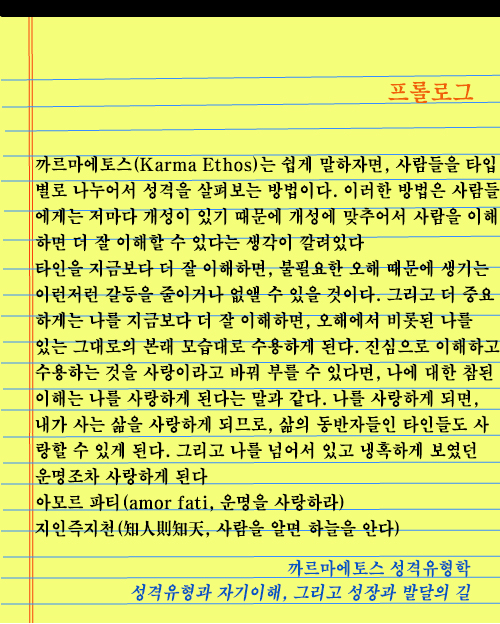 프롤로그
까르마에토스(Karma Ethos)는 쉽게 말하자면, 사람들을 타입
별로 나누어서 성격을 살펴보는 방법이다. 이러한 방법은 사람들
에게는 저마다 개성이 있기 때문에 개성에 맞추어서 사람을 이해
하면 더 잘 이해할 수 있다는 생각이 깔려있다
타인을 지금보다 더 잘 이해하면, 불필요한 오해 때문에 생기는
이런저런 갈등을 줄이거나 없앨 수 있을 것이다. 그리고 더 중요
하게는 나를 지금보다 더 잘 이해하면, 오해에서 비롯된 나를
있는 그대로의 본래 모습대로 수용하게 된다. 진심으로 이해하고
수용하는 것을 사랑이라고 바꿔 부를 수 있다면, 나에 대한 참된
이해는 나를 사랑하게 된다는 말과 같다. 나를 사랑하게 되면,
내가 사는 삶을 사랑하게 되므로, 삶의 동반자들인 타인들도 사
랑할 수 있게 된다. 그리고 나를 넘어서 있고 냉혹하게 보였던
운명조차 사랑하게 된다
아모르 파티(amor fati, 운명을 사랑하라)
지인즉지천(知人則知天, 사람을 알면 하늘을 안다)
까르마에토스 성격유형학
성격유형과 자기이해, 그리고 성장과 발달의 길